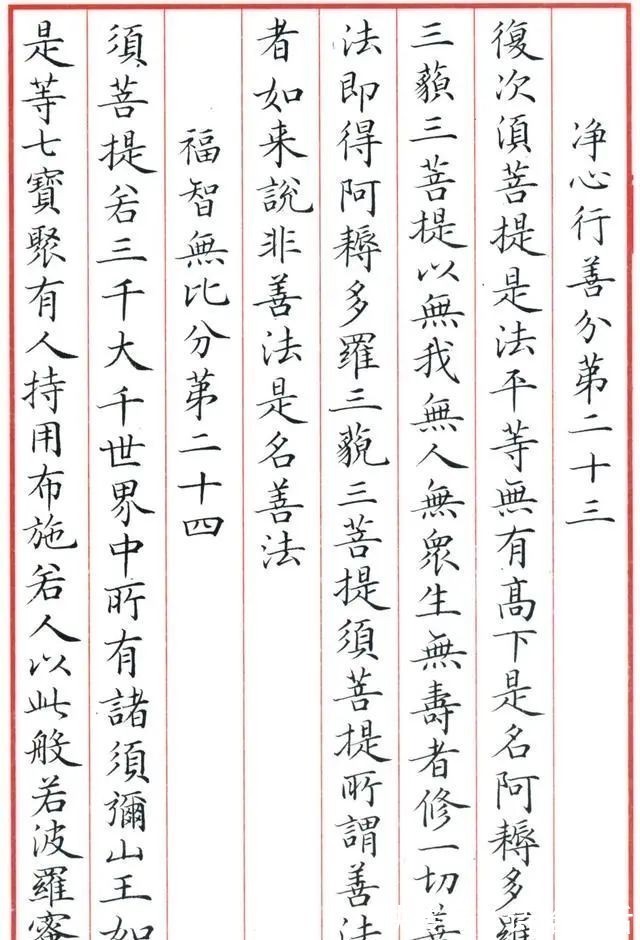 净心行善分第二十三
復次須菩提是法平等無有髙下是名阿耨多羅
三藐三菩提以無我無人無衆生無壽者修一切善
法即得阿耨多羅三藐三菩提須菩提所謂善法
者如来說非善法是名善法
福智無比分第二十四
須菩提若三千大千世界中所有諸須彌山王如
是等七寶聚有人持用布施若人以此般若波羅蜜